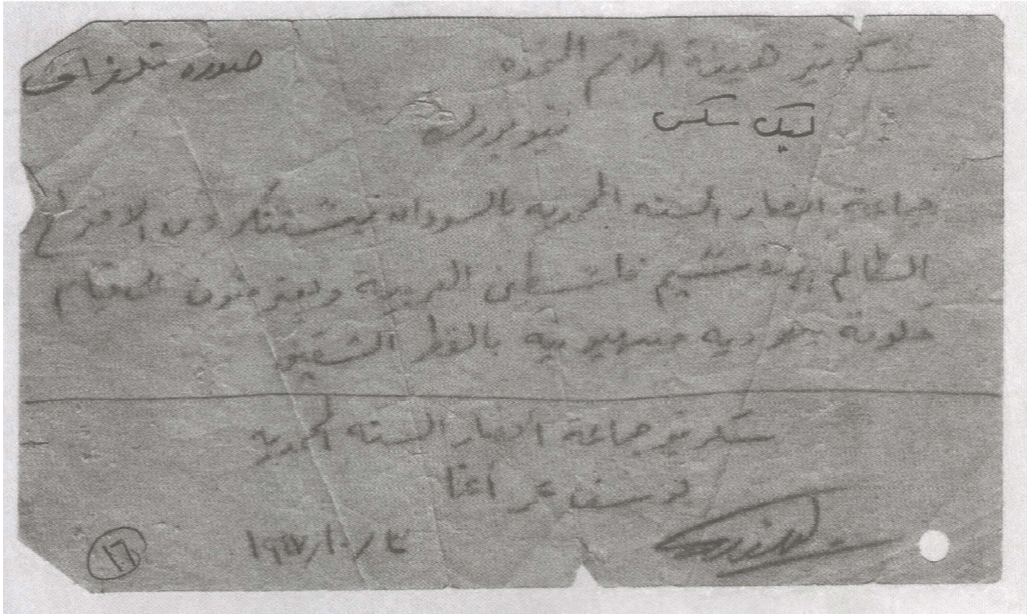 صورة تلغراف
سكرتير هيئة الامم المتحده
ليك سكس نيويورك
جماعة انصار السنه المحمديه بالسودان يستنكرون الاقتراح
الظالم بتقسيم فلسطين العربية ويعترضون لقيام
حكومة يهوديه صهيونيه بالقطر الشقيق
سكرتير جماعة انصار السنه المحمديه
يوسف عمر اغا
١٩٤٧/١٠/
١٦